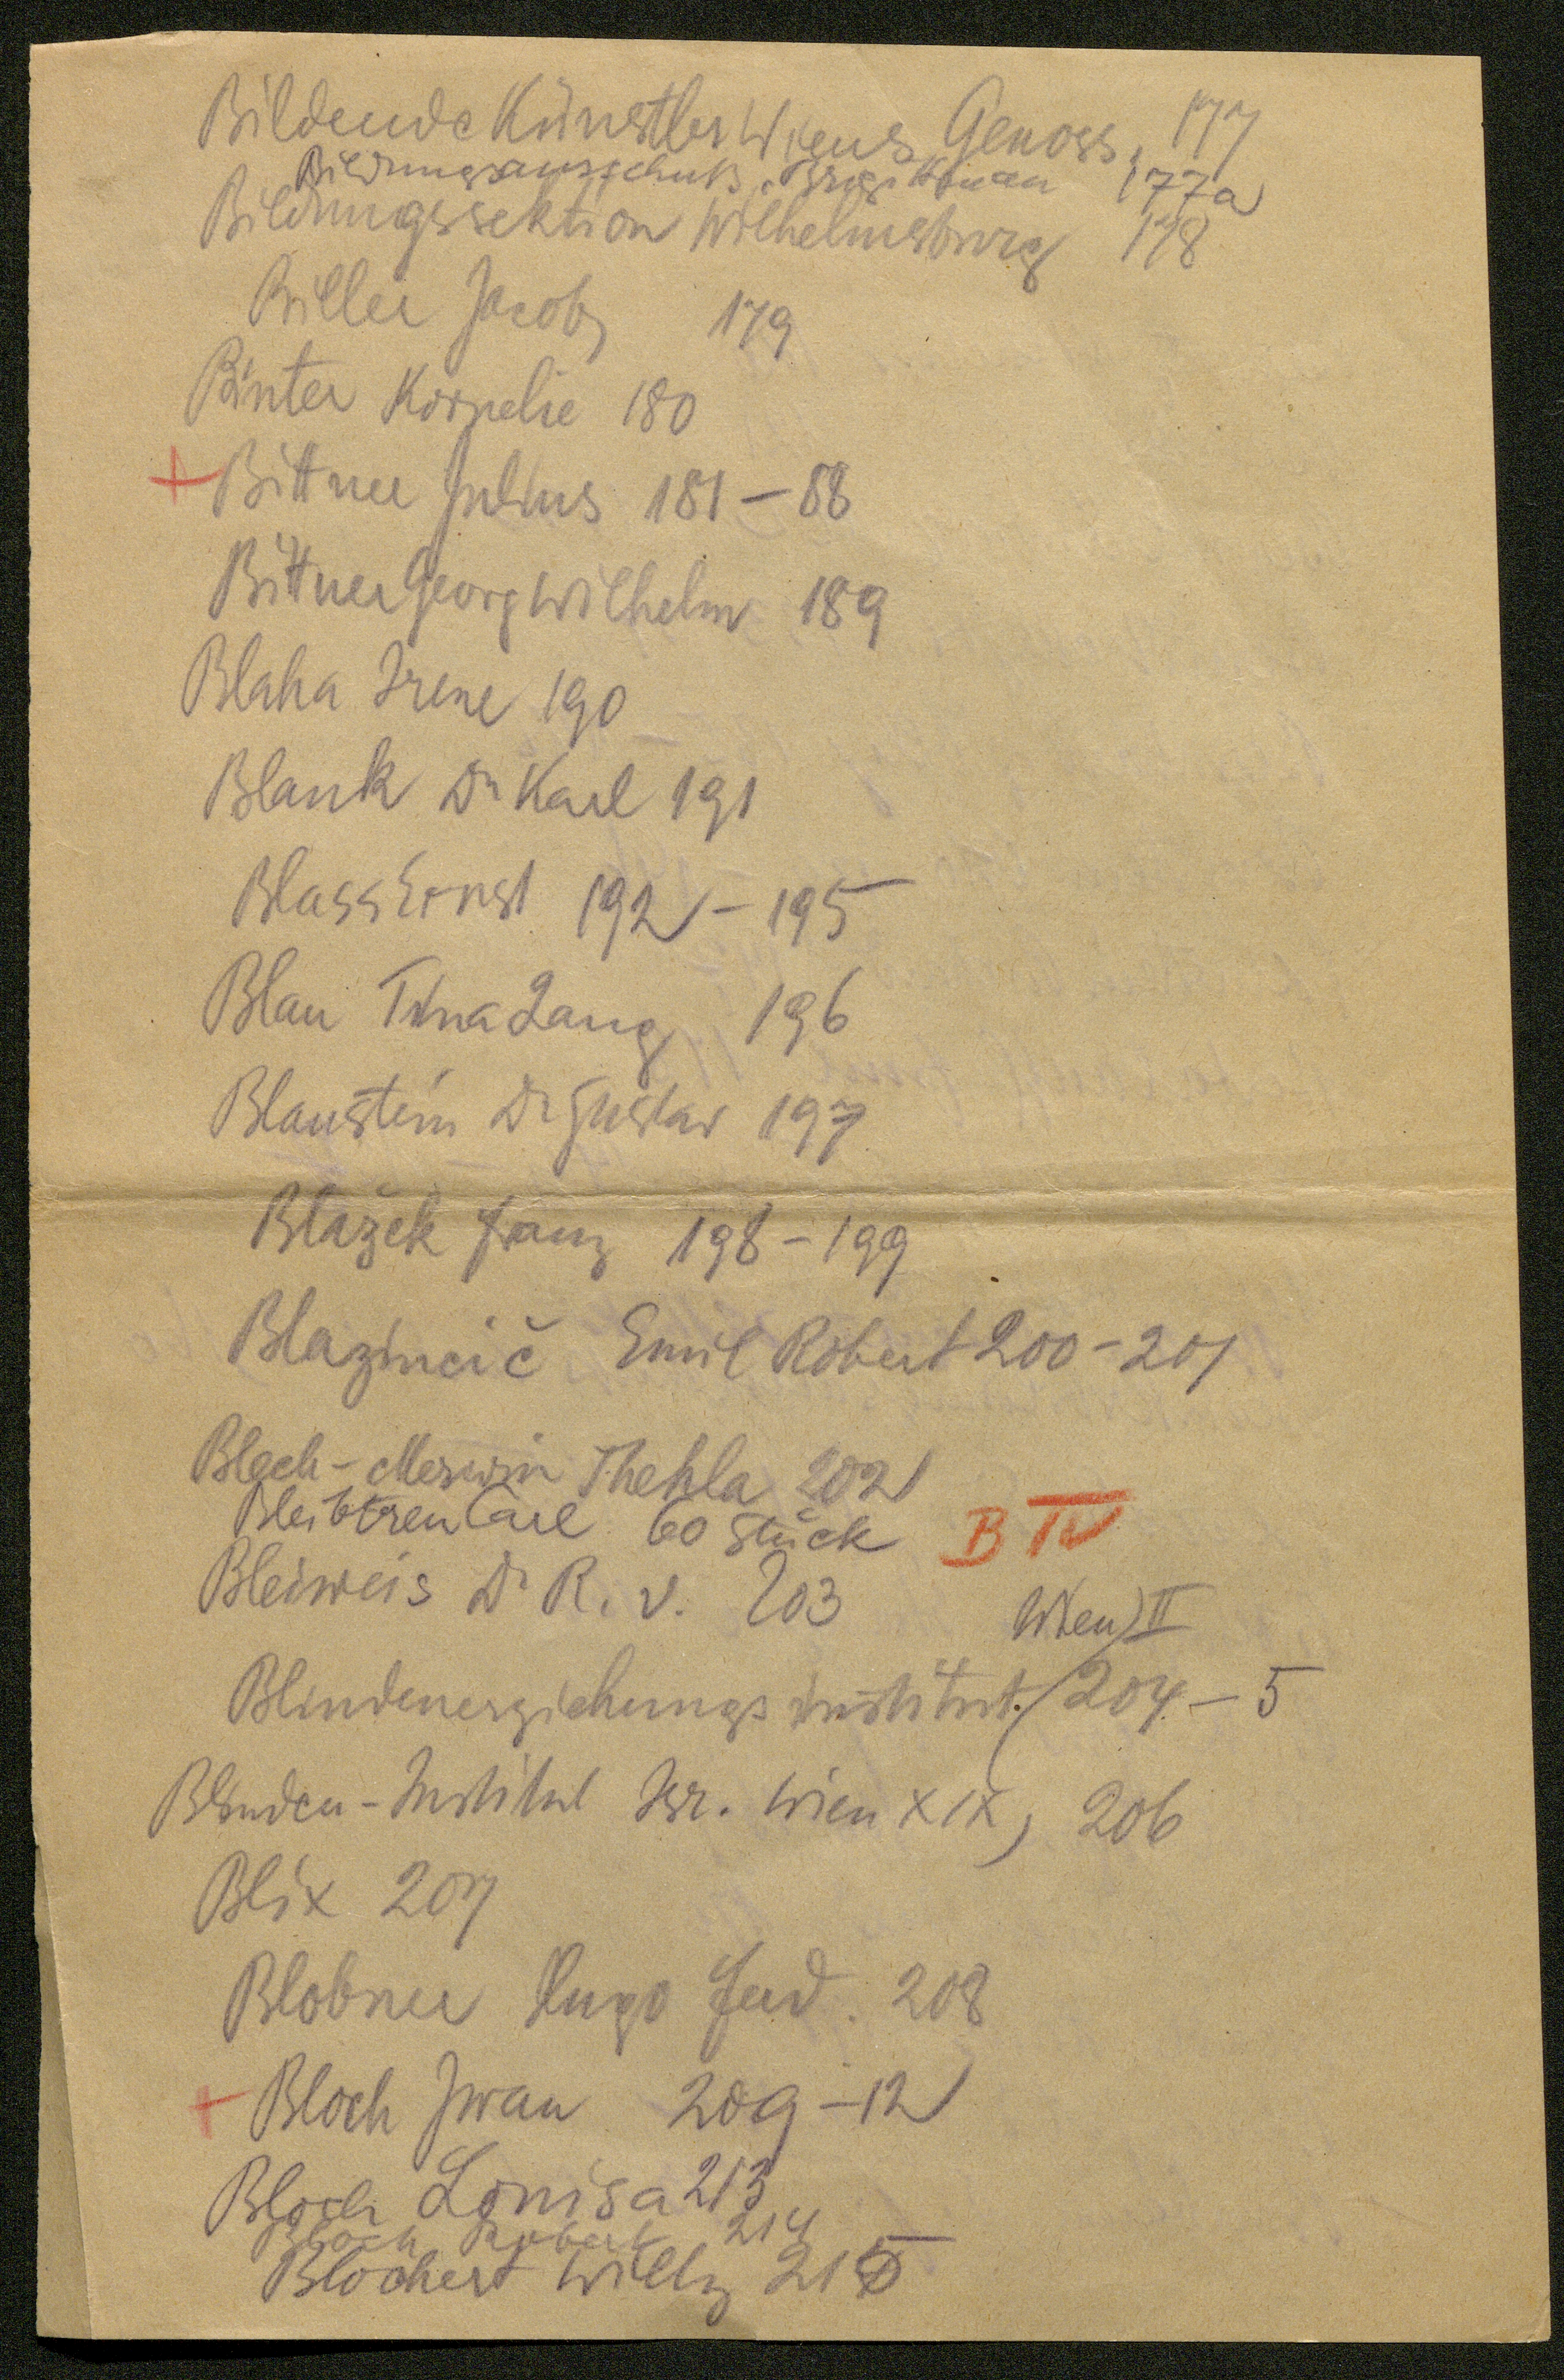 Bildende Künstler Wiens, Genoss. 177
Bildungsausschuß, Brigittenau 177a
Bildungssektion Wilhelmsburg 178
Biller Jacob 179
Binter Kornelie 180
+ Bittner Julius 181 – 88
Bittner Georg Wilhelm 189
Blaha Irene 190
Blank Dr Karl 191
Blass Ernst 192 – 195
Blau Tina Lang 196
Blaustein Dr Gustav 197
Blažek Franz 198 – 199
Blazincič Emil Robert 200 – 201
Bloch - Merwin Thekla 202
Bleibtreu Carl 60 Stück B IV
Bleiweis Dr R. v. 203
Wien II
Blindenerziehungsinstitut. 204 – 5
Blinden - Institut Isr. Wien XIX, 206
Blix 207
Blobner Hugo Ferd. 208
+ Bloch Iwan 209 – 12
Bloch Louisa 213
Bloch Robert 214
Blochert Willy 215